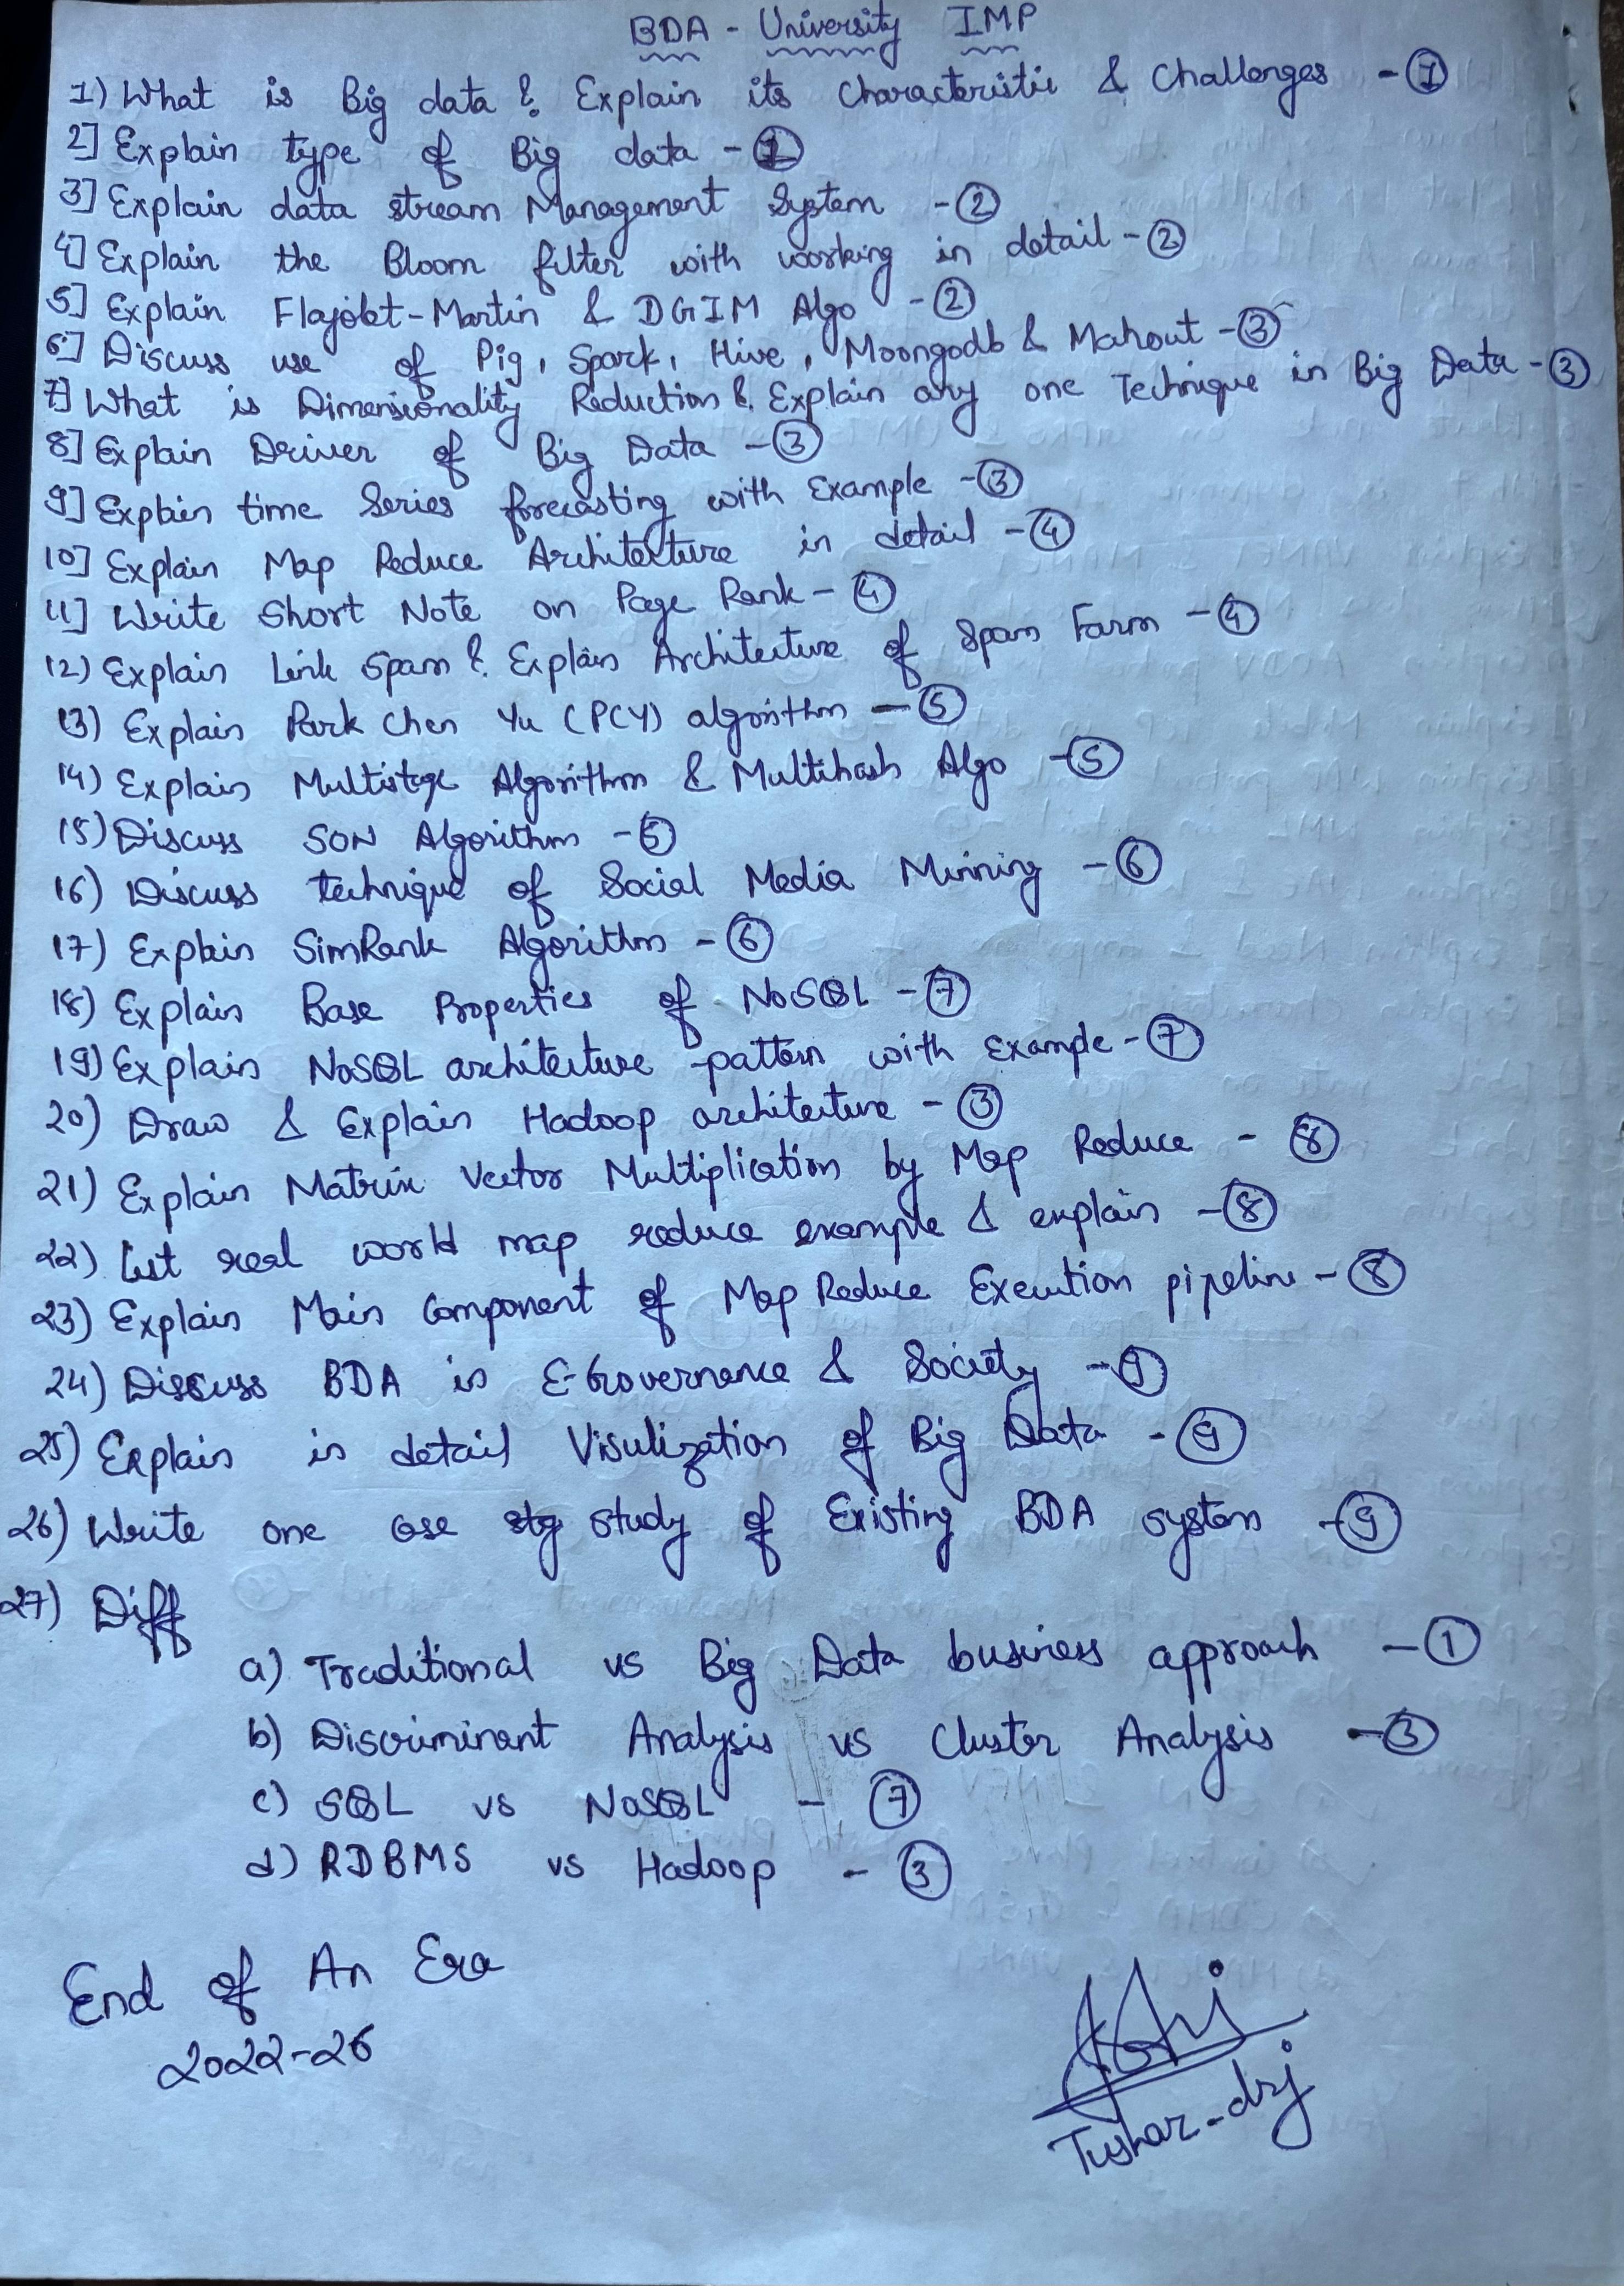 BDA - University IMP
1) What is Big data ? Explain its characteristic & challenges - ①
2] Explain type of Big data - ①
3] Explain data stream Management System - ②
4] Explain the Bloom filter with working in detail - ②
5] Explain Flajolet-Martin & DGIM Algo - ②
6] Discuss use of Pig, Spark, Hive, Moongodb & Mahout - ③
7] What is Dimensionality Reduction ? Explain any one Technique in Big Data - ③
8] Explain Driver of Big Data - ③
9] Explain time Series forecasting with Example - ③
10] Explain Map Reduce Architecture in detail - ④
11] Write Short Note on Page Rank - ④
12) Explain Link Spam ? Explain Architecture of Spam Farm - ④
13) Explain Park Chen Yu (PCY) algorithm - ⑤
14) Explain Multistage Algorithm & Multihash Algo - ⑤
15) Discuss SON Algorithm - ⑤
16) Discuss technique of Social Media Minning - ⑥
17) Explain SimRank Algorithm - ⑥
18) Explain Base Properties of NoSQL - ⑦
19) Explain NoSQL architecture pattern with example - ⑦
20) Draw & Explain Hadoop architecture - ③
21) Explain Matrix Vector Multiplication by Map Reduce - ⑧
22) List real world map reduce example & explain - ⑧
23) Explain Main Component of Map Reduce Execution pipeline - ⑧
24) Discuss BDA in E-Governance & Society - ⑨
25) Explain in detail Visulization of Big Data - ⑨
26) Write one case study of Existing BDA system - ⑨
27) Diff
a) Traditional vs Big Data business approach - ①
b) Discriminant Analysis vs Cluster Analysis - ③
c) SQL vs NoSQL - ⑦
d) RDBMS vs Hadoop - ③
End of An Era
2022-26
Tushar-drj